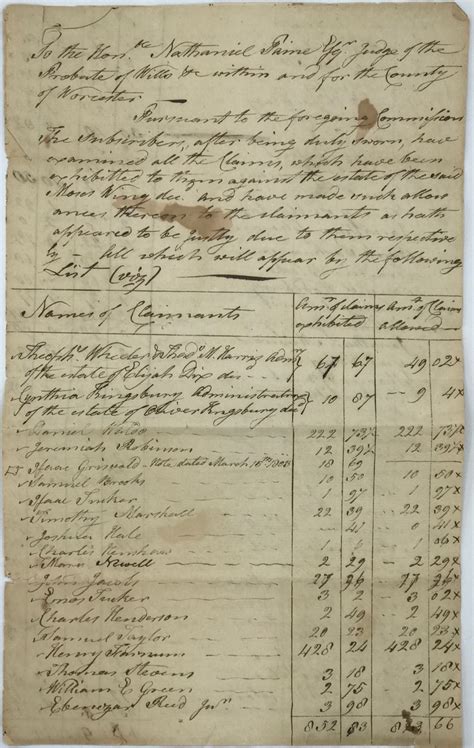 To the Hon.ble Nathaniel Paine Esqr. Judge of the
Probate of Wills &c within and for the County
of Worcester
Pursuant to the foregoing Commission
The Subscribers, after being duly sworn, have
examined all the Claims, which have been
exhibited to them against the estate of the said
Moses Wing dec. and have made such allow
ances thereon to the claimants as hath
appeared to be justly due to them respective
by — All which will appear by the following
List (viz)
Names of Claimants Amt. of claims exhibited Amt. of Claims allowed
Theophs. Wheeler & Thads. M. Harris Admrs
of the estate of Elijah Dix dec — 67 67 49 02×
Cynthia Kingsbury Administratrix
of the estate of Oliver Kingsbury dec 10 87 9 4×
Daniel Waldo 222 73½ 222 73½
Jeremiah Robinson 12 39½ 12 39½
Isaac Griswald Note dated March 18th 18 69
Samuel Brooks
Isaac Tucker 1 97 1 97×
Timothy Marshall 22 39 22 39×
Joshua Hale — 41 0 41×
Charles Henshaw
Newell 2 29 2 29×
John Jacobs 27 27
Enos Tucker 3 2 3 02×
Charles Henderson 2 49 2 49×
Samuel Taylor 20 23 20 23×
Henry 428 24 428 24×
Thomas Stevens 3 18 3 18×
William E Green 2 75 2 75×
Ebenezar Reed Junr. 3 98 3 98×
852 83 66